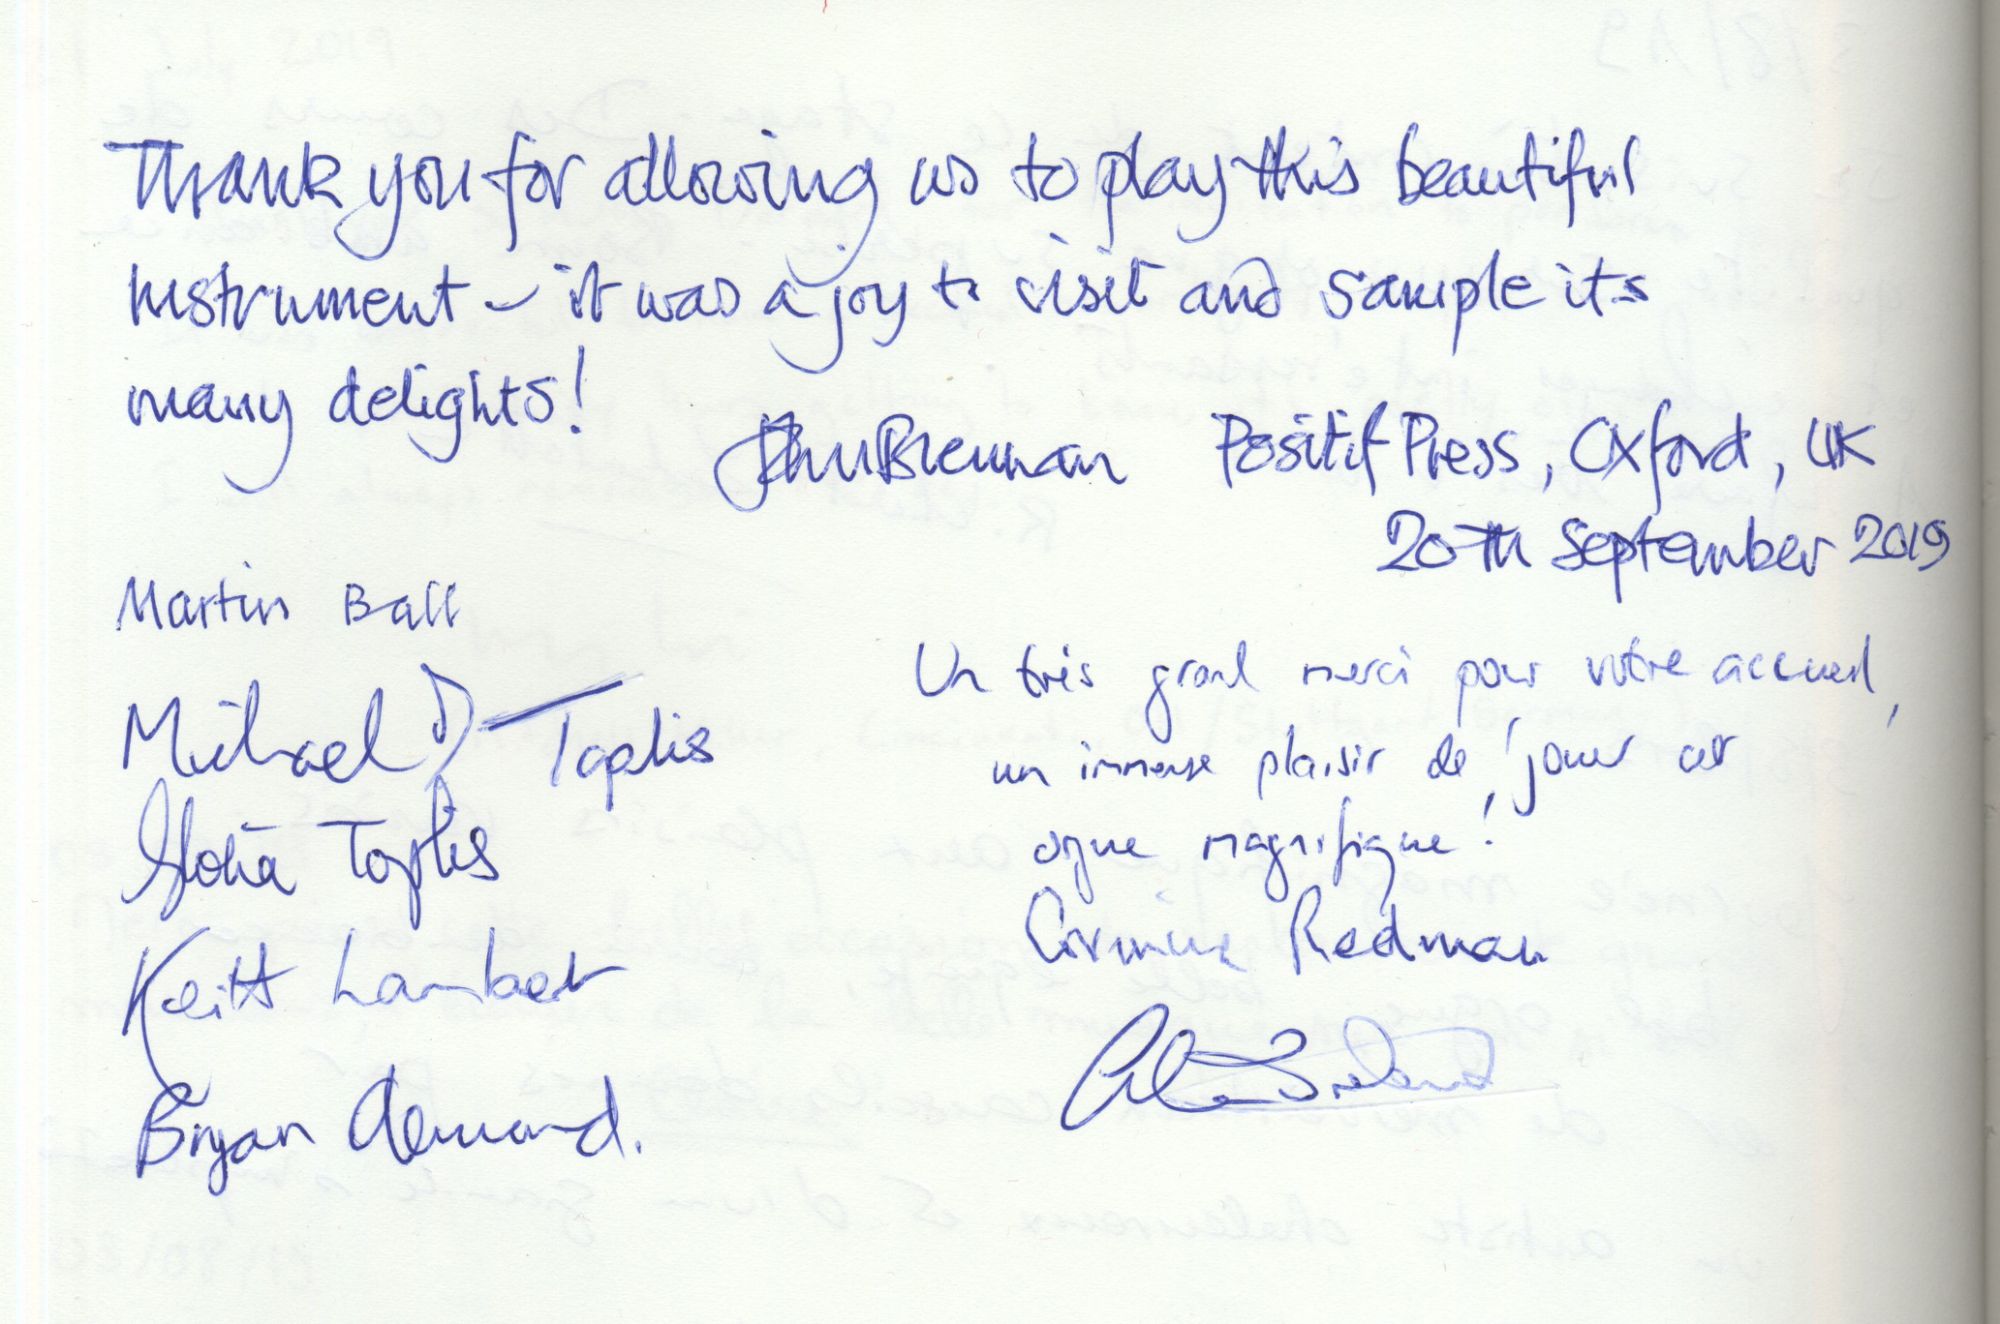 Thank you for allowing us to play this beautiful
instrument – it was a joy to visit and sample its
many delights!
John Brennan Positif Press, Oxford, UK
20th September 2019
Martin Ball
Michael D Toplis
Gloria Toplis
Keith Lambert
Bryan
Un très grand merci pour votre accueil,
un immense plaisir de jouer cet
orgue magnifique!
Corinne Redman